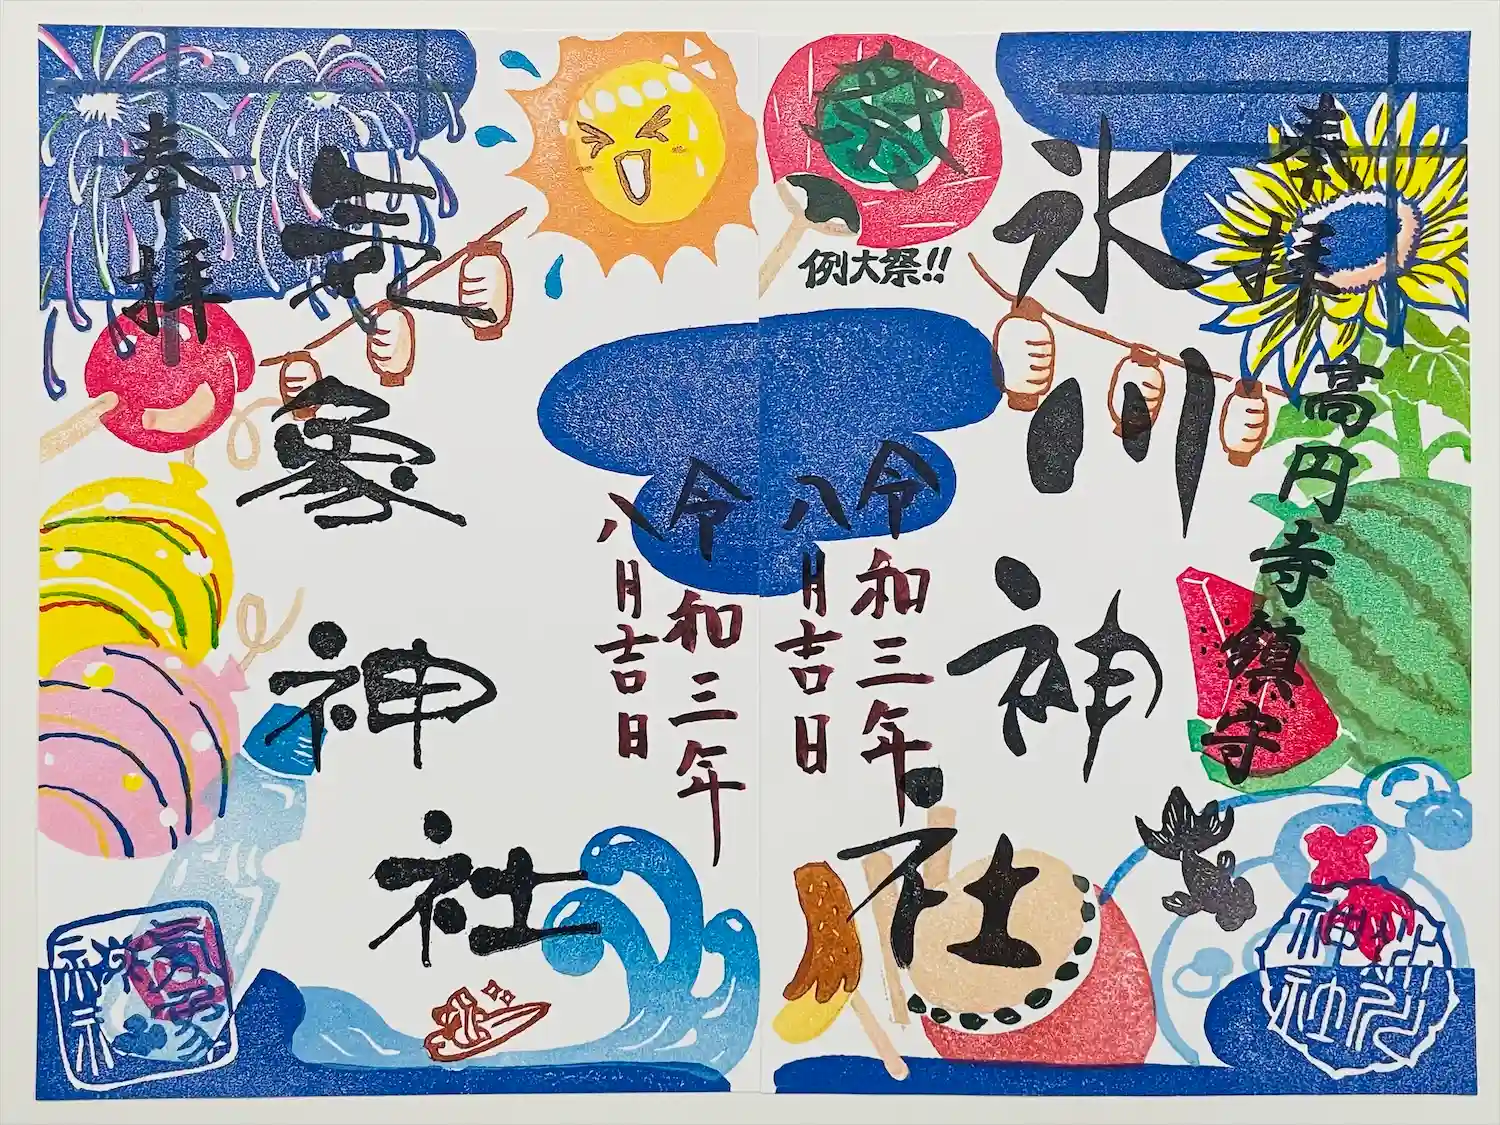 奉拝
高円寺鎮守
氷川神社
祭
例大祭!!
令和三年
八月吉日
令和三年
八月吉日
気象神社
奉拝